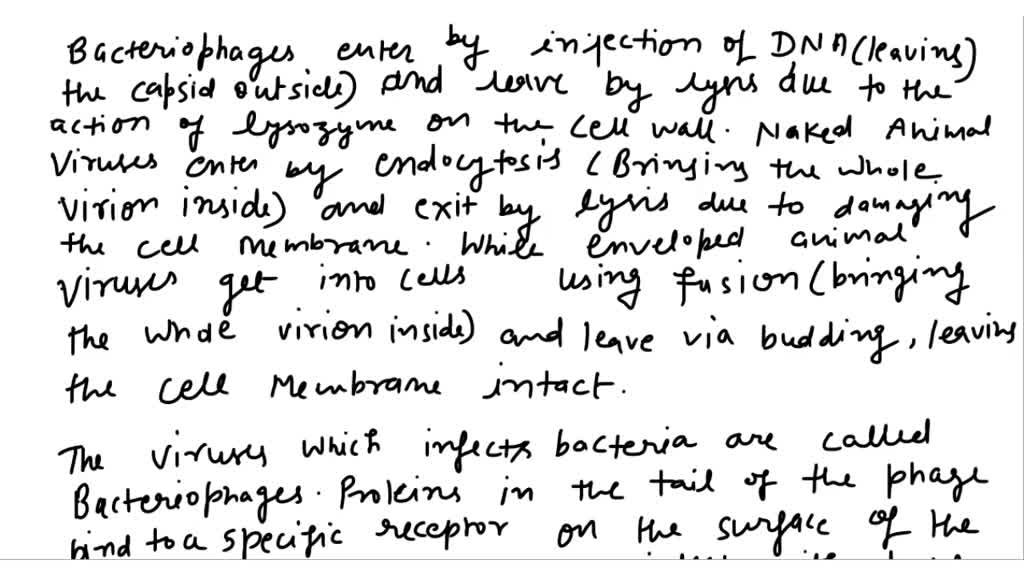 Bacteriophages enter by injection of DNA (leaving)
the capsid outside) and leave by lysis due to the
action of lysozyme on the cell wall. Naked Animal
Viruses enter by endocytosis (Bringing the whole
virion inside) and exit by lysis due to damaging
the cell membrane. While enveloped animal
viruses get into cells using fusion (bringing
the whole virion inside) and leave via budding, leaving
the cell Membrane intact.
The viruses which infects bacteria are called
Bacteriophages. Proteins in the tail of the phage
bind to a specific receptor on the surface of the